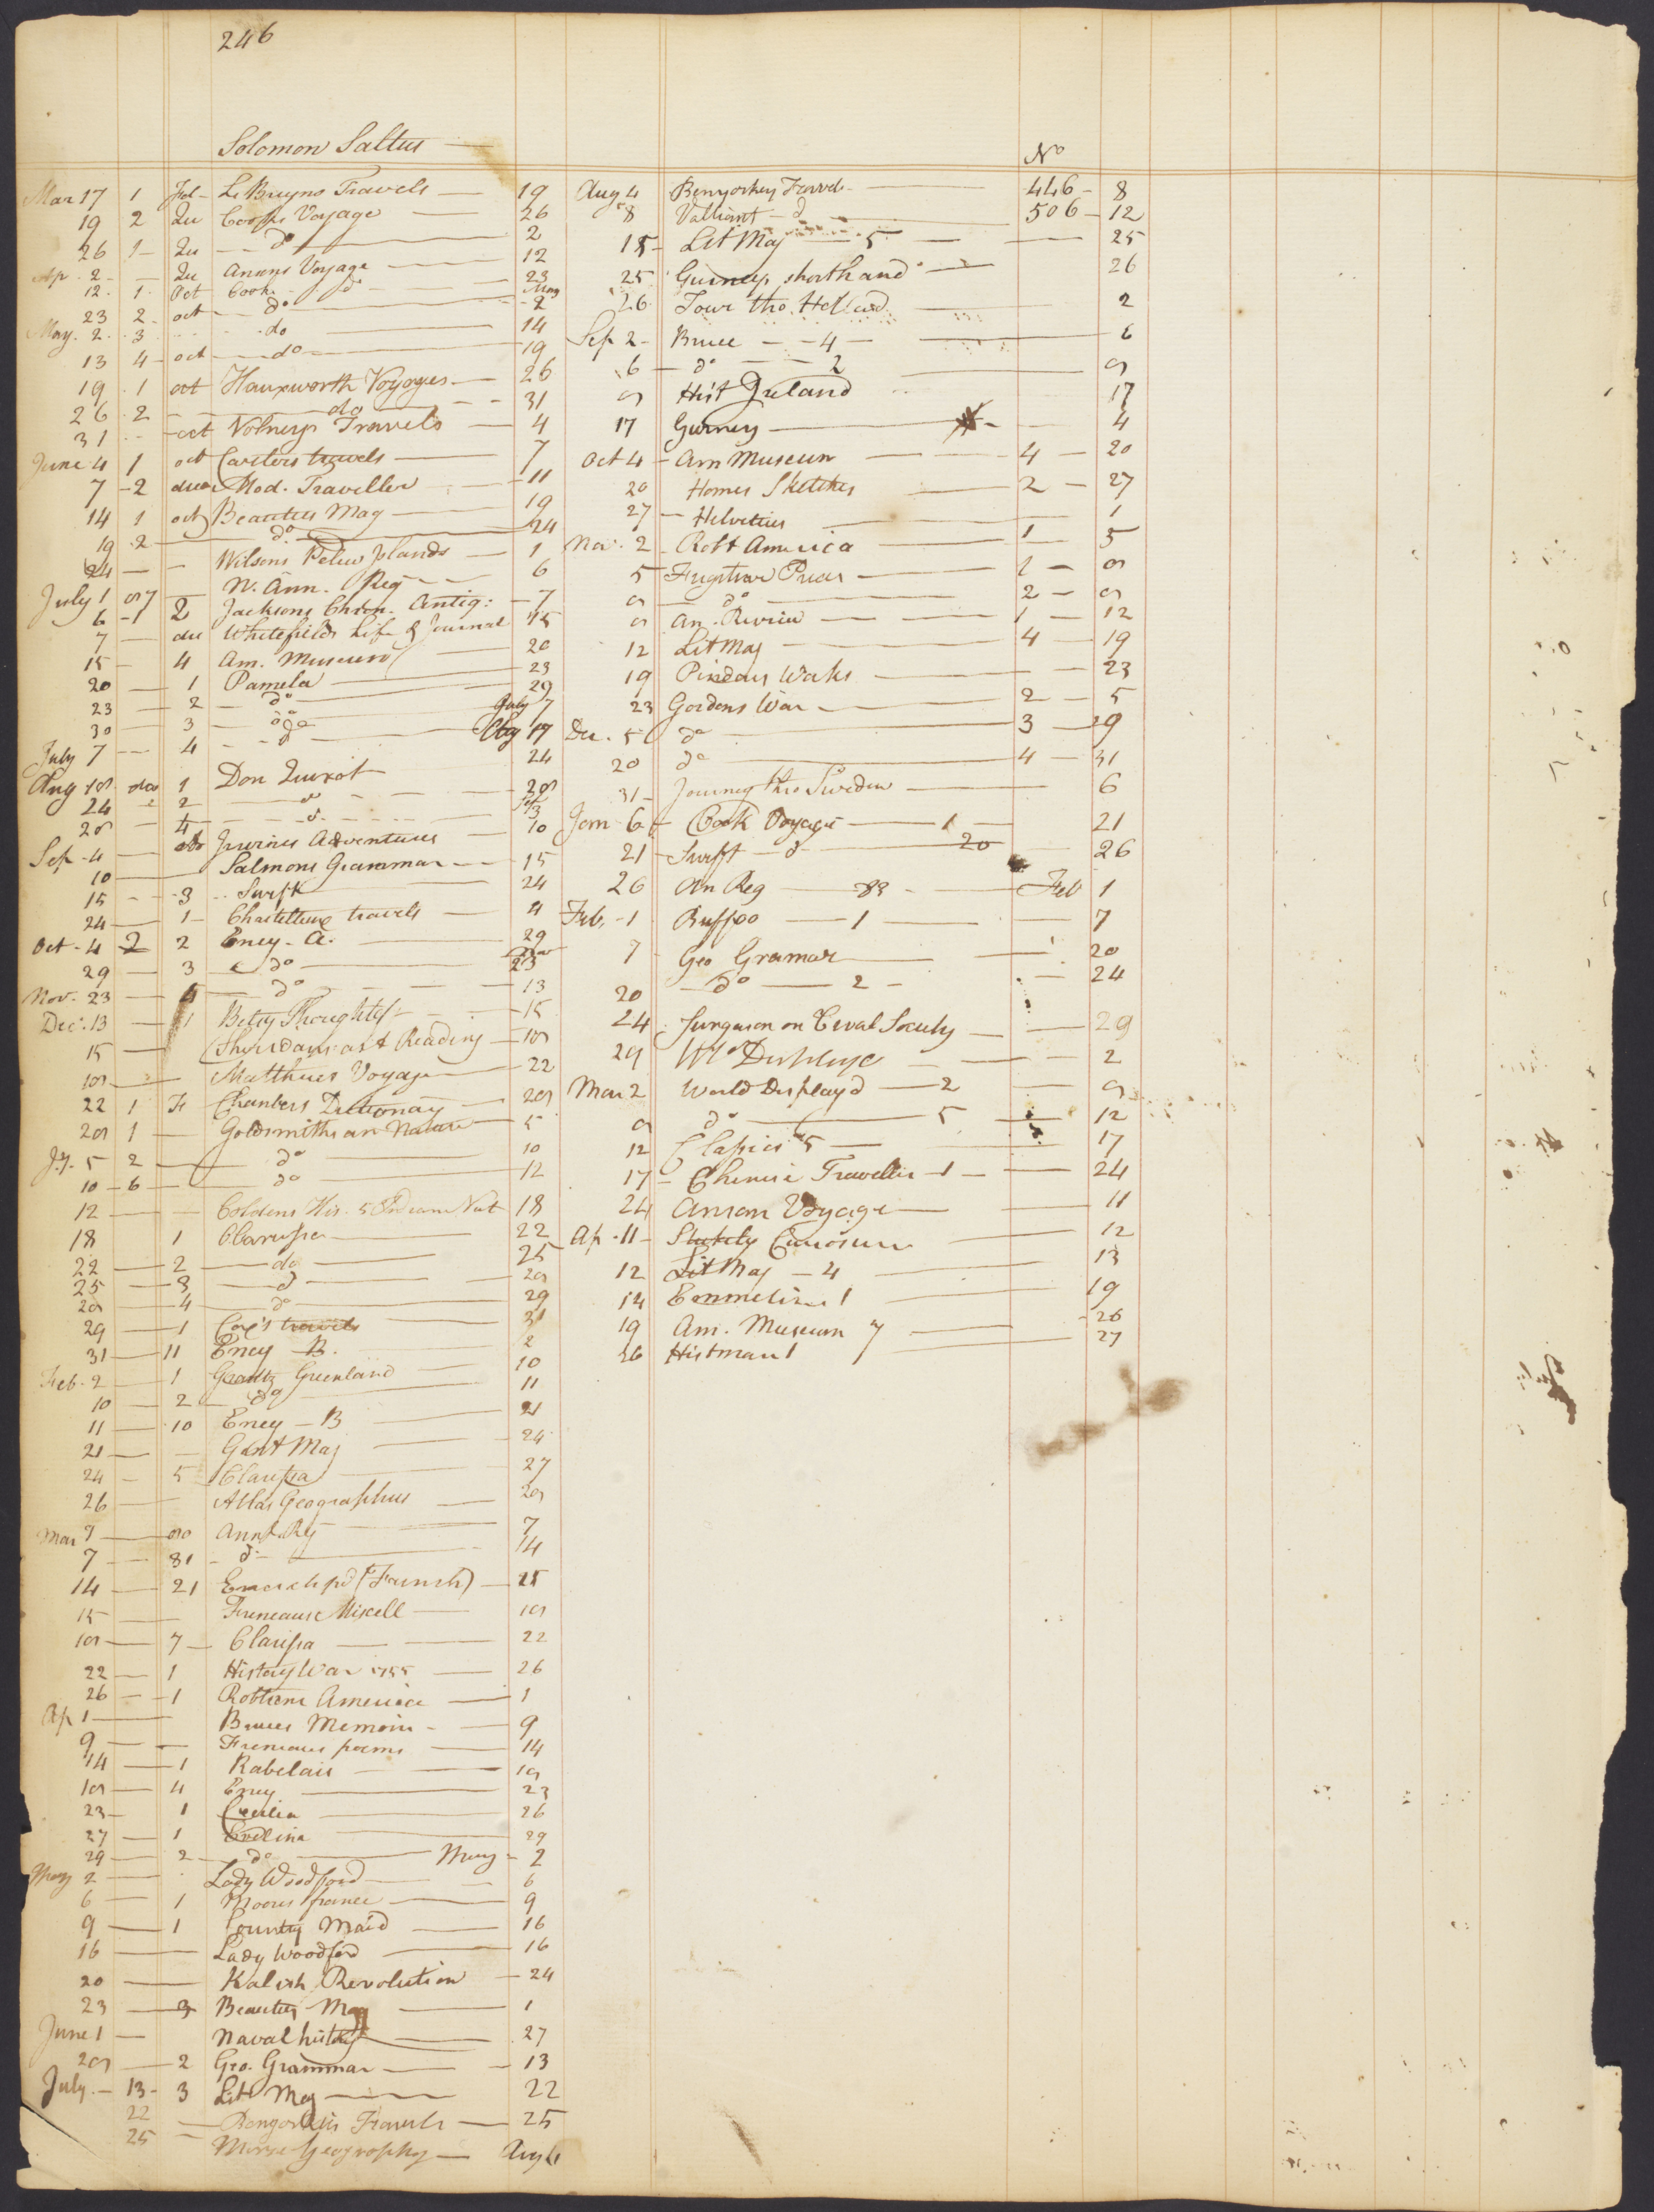 246
Solomon Saltus
Mar 17 1 Fol- Le Bruyns Travels 19
19 2 Qu Cooks Voyage 26
26 1 Qu do 2
Ap. 2 Qu Ansons Voyage 12
12. 1 Oct Cook do 23
23 2 oct do May 2
May. 2. 3 do 14
13 4 oct do 19
19 1 oct Hauxworth Voyages 26
26 2 do 31
31 oct Volneys Travels 4
June 4 1 oct Carters travels 7
7 2 Mod. Traveller 11
14 1 oct Beauties Mag 19
19 2 do 24
24 Wilsons Pelew Islands 1
July 1 N. Ann. Reg 6
6 1 2 Jacksons Chron. Antiq: 7
7 Whitefields Life & Journal 15
15 4 Am. Museum 20
20 1 Pamela 23
23 2 do 29
30 3 do July 7
July 7 4 do Aug 17
Aug 18 1 Don Quixot 24
24 2 do 28
28 4 do Sep 3
Sep 4 Adventures 10
10 Salmons Grammar 15
15 3 Swift 24
24 1 travels 4
Oct 4 2 2 Ency. A. 29
29 3 do Nov 23
Nov. 23 4 do 13
Dec. 13 1 Betsy Thoughtless 15
15 Sheridans art Reading 18
18 Matthews Voyage 22
22 1 F Chambers Dictionary 28
28 1 Goldsmiths an Nature 5
Jy. 5 2 do 10
10 6 do 12
12 Coldens His. 5 Indian Nat 18
18 1 Clarissa 22
22 2 do 25
25 3 do 28
28 4 do 29
29 1 Cox's travels 31
31 11 Ency B. 2
Feb. 2 1 Grantz Greenland 10
10 2 do 11
11 10 Ency B 21
21 Gent Mag 24
24 5 Clarissa 27
26 Atlas Geographus 28
Mar 7 80 Annl. Reg 7
7 81 do 14
14 21 Encyclopd (French) 15
15 Freneaus Miscell 18
18 7 Clarissa 22
22 1 History War 1755 26
26 1 Robtsons America 1
Ap 1 Bruces Memoirs 9
9 Freneaus poems 14
14 1 Rabelais 18
18 4 Ency 23
23 1 Cecilia 26
27 1 Evelina 29
29 2 do May 2
May 2 Lady Woodford 6
6 1 Moores france 9
9 1 Country Maid 16
16 Lady Woodford 16
20 Kalish Revolution 24
23 3 Beauties Mag 1
June 1 Naval history 27
28 2 Geo. Grammar 13
July 13 3 Lit Mag 22
22 Travels 25
25 Morse Geography Aug 4
No
Aug 4 Benyoskey Travels 446 8
8 Valliant do 506 12
18 Lit Mag 5 25
25 Gurneys shorthand 26
26 Tour thro. Holland 2
Sep 2 Bruce 4 6
6 do 2 9
9 Hist Ireland 17
17 Gurney 4
Oct 4 Am Museum 4 20
20 Homes Sketches 2 27
27 Helvetius 1
Nov. 2 Robt America 1 5
5 1 8
8 do 2 9
9 An. Review 1 12
12 Lit Mag 4 19
19 Pindars Works 23
23 Gordons War 2 5
Dec. 5 do 3 19
20 do 4 31
31 Journey thro Sweden 6
Jan 6 Cook Voyage 1 21
21 Swift do 20 26
26 An Reg 83 Feb 1
Feb. 1 Buffoo 1 7
7 Geo Gramar 20
20 do 2 24
24 Furguson on Cival Society 29
29 Wld Displayd 2
Mar 2 World Displayd 2 9
9 do 5 12
12 Classics 5 17
17 Chinese Traveller 1 24
24 Anson Voyage 11
Ap. 11 12
12 Lit Mag 4 13
14 Emmeline 1 19
19 Am. Museum 7 26
26 Histman 1 27